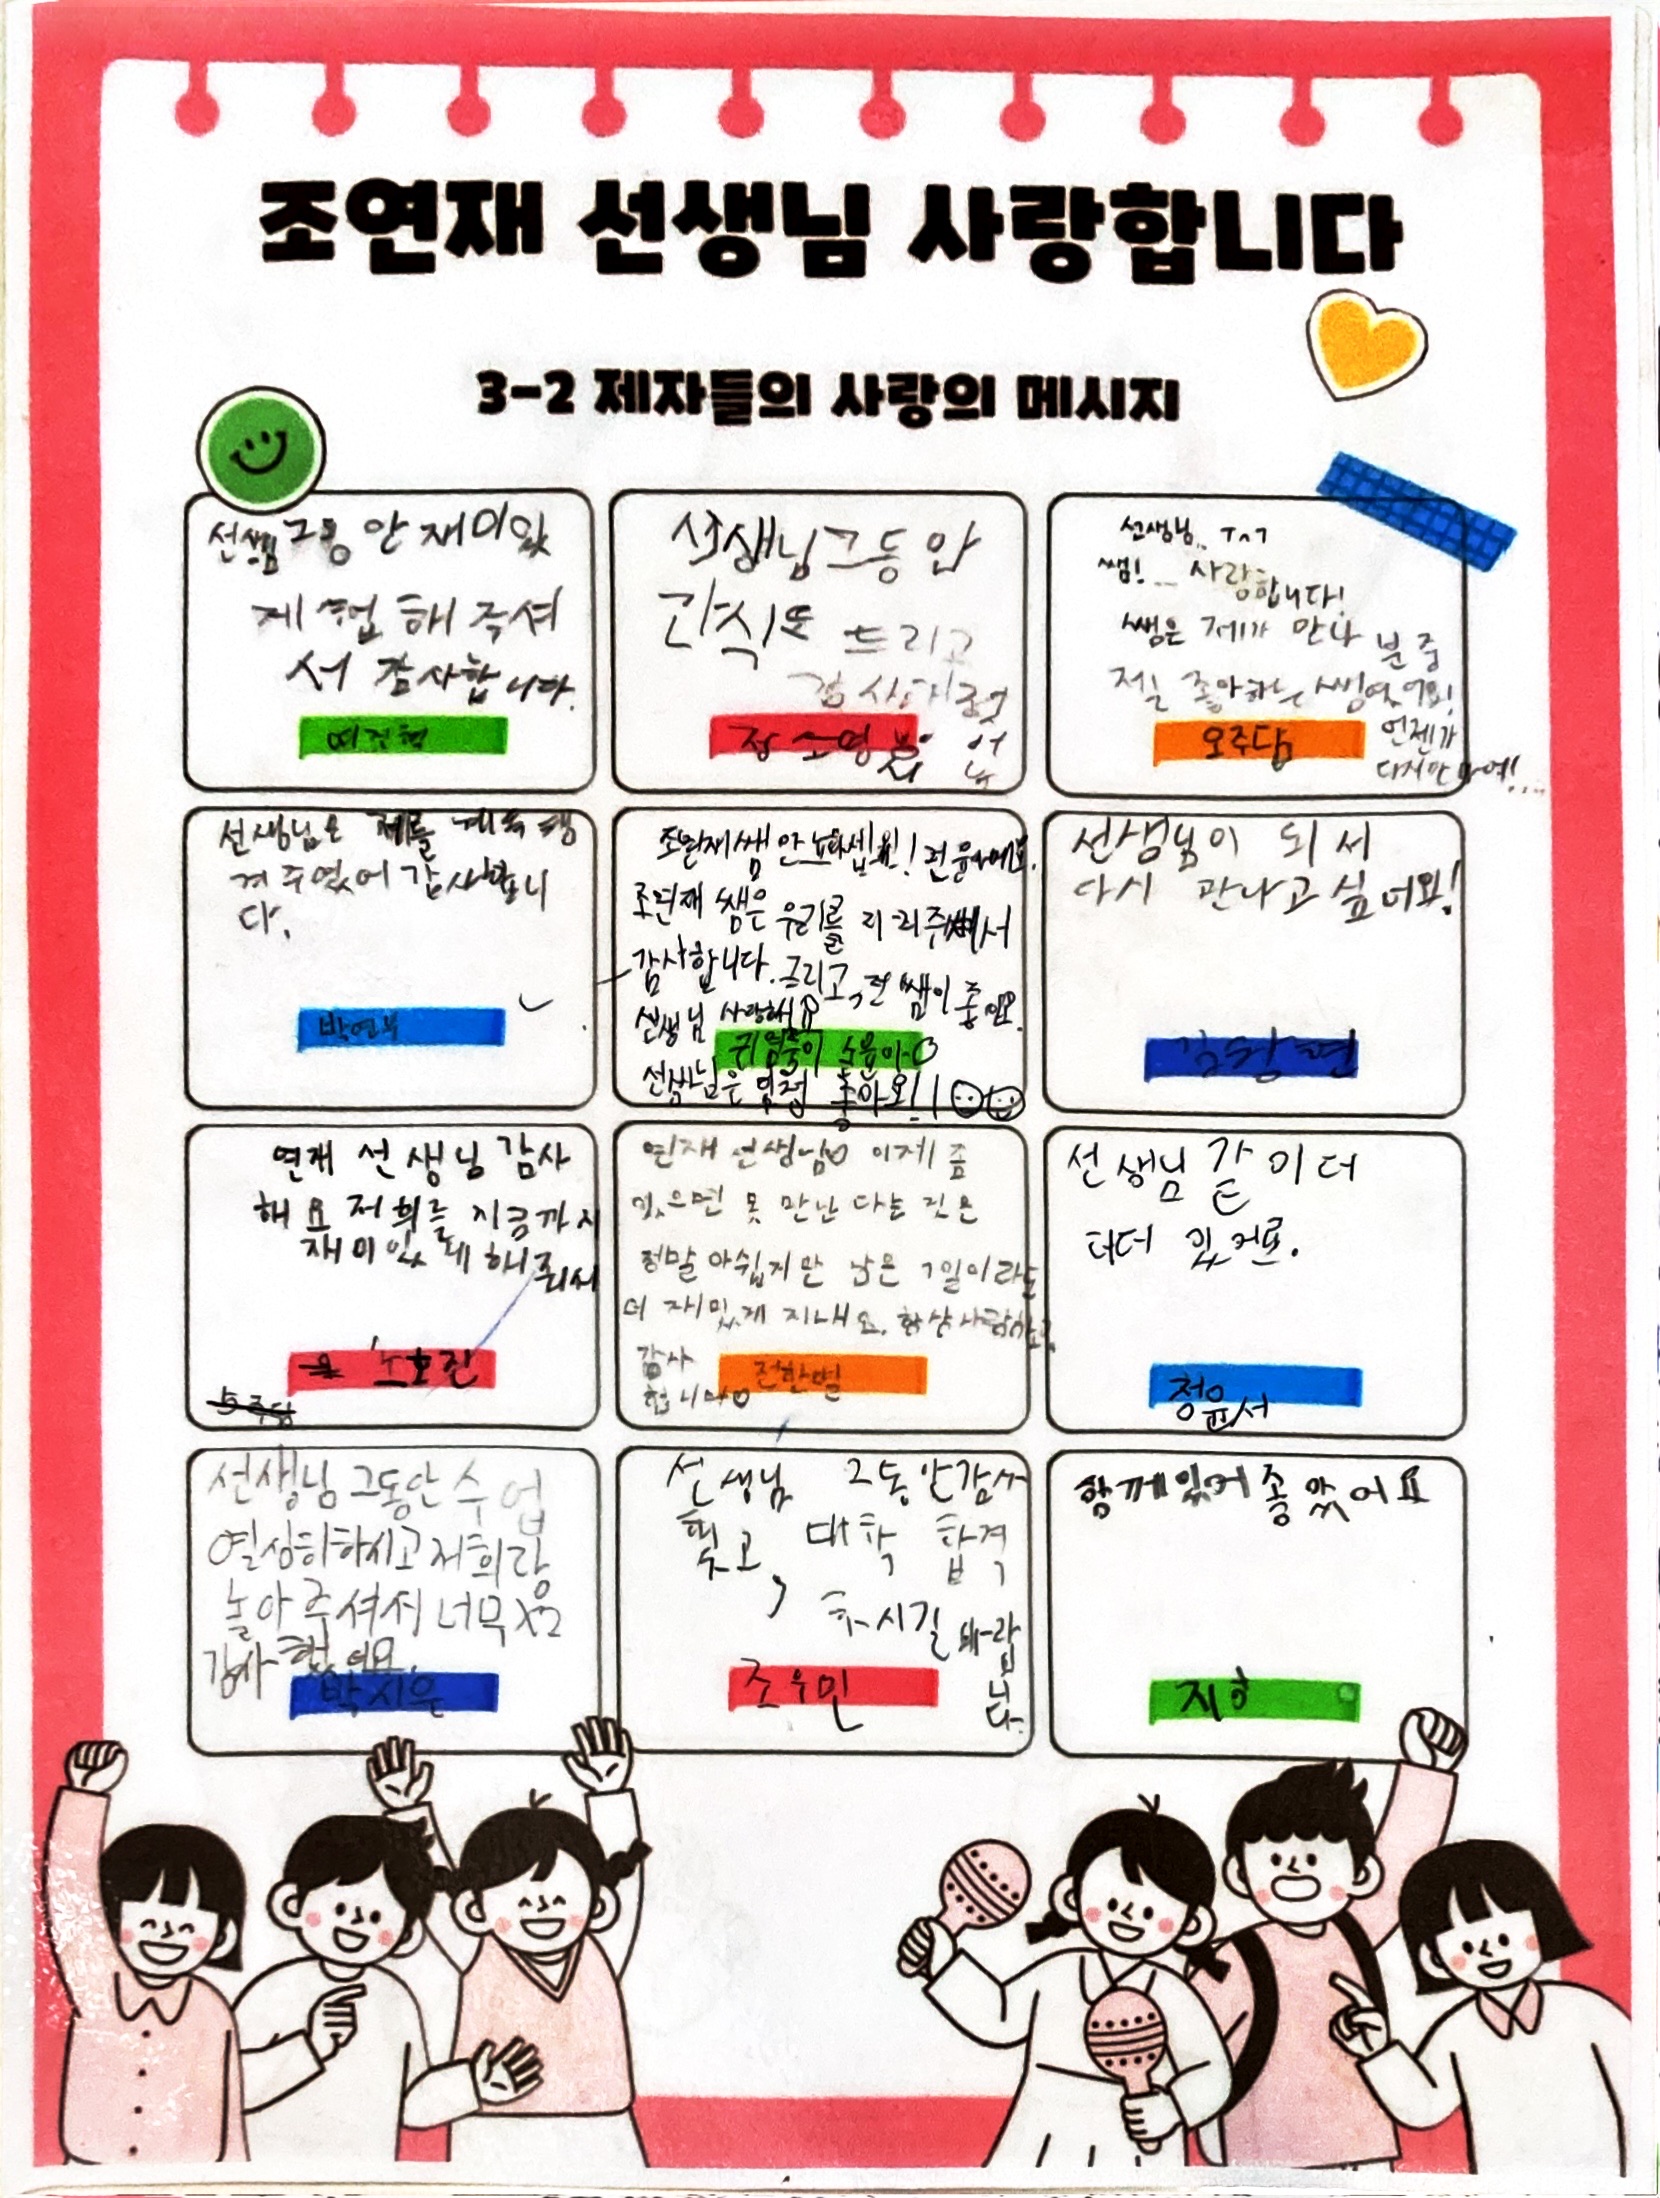 조연재 선생님 사랑합니다
3-2 제자들의 사랑의 메시지
선생님 그동안 재미있
게 수업 해 주셔
서 감사합니다.
선생님 그동안
간식도 드리고
장소영
선생님.. ㅜㅅㅜ
쌤! ... 사랑합니다!
쌤은 제가 만나 분 중
제일 좋아하는 쌤였어요!
언젠가
다시만나여!...
오주담
선생님은 계속 챙
겨 주였어 감사합니
다.
박연부
조연재 쌤 안녕하세요! 전 윤아에요.
조연재 쌤은 우리를 주셔서
감사합니다. 그리고, 전 쌤이 좋아요.
선생님 사랑해요
귀염둥이 윤아
선생님은 엄청 좋아요!!
선생님이 되서
다시 만나고 싶어요!
연재 선생님 감사
해요 저희를 지금까지
재미있게 해줘서
노호진
연재 선생님 이제 좀
있으면 못 만난 다는 것은
정말 아쉽지만 남은 1일이라도
더 재미있게 지내요. 항상 사랑하고
감사
합니다
전한별
선생님 같이 더
더더 있거료.
정윤서
선생님 그동안 수업
열심히하시고 저희랑
놀아주셔서 너무X2
감사했어요.
박시은
선생님 그동안감사
했고, 대학 합격
하시길 바랍니다.
조우민
함께있어 좋았어요
지호